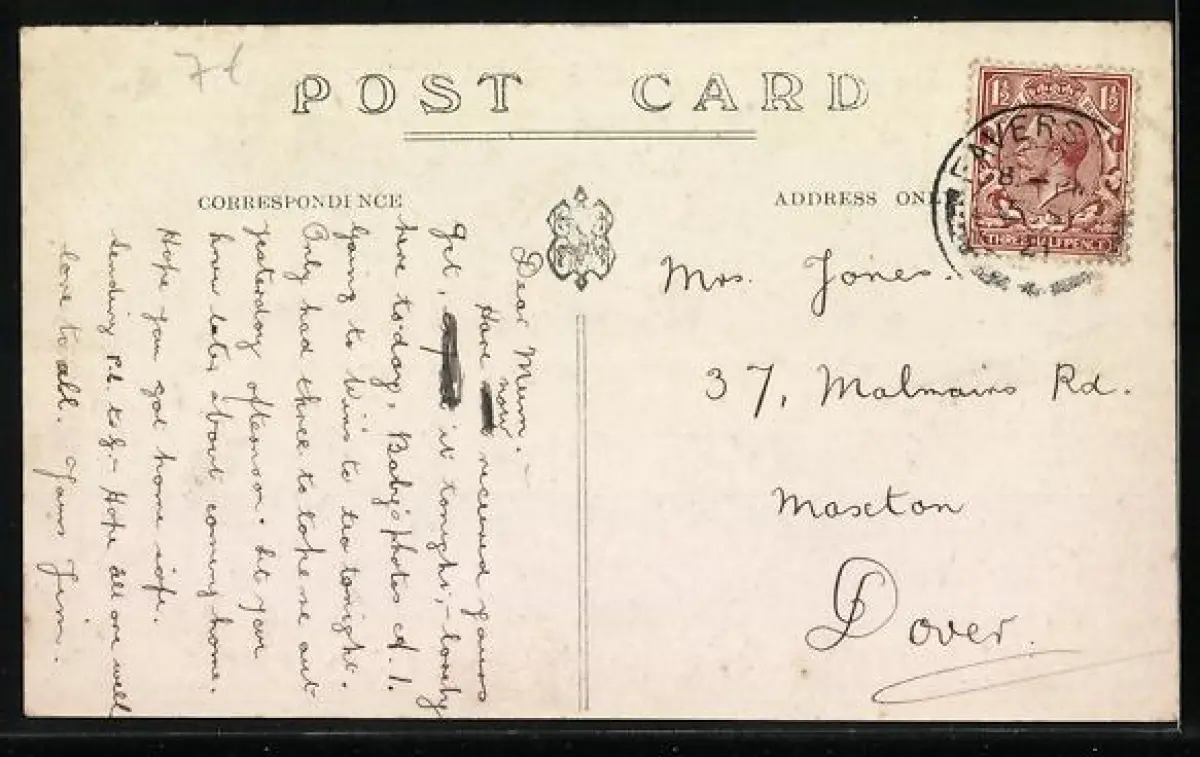 7d
POST CARD
CORRESPONDENCE
ADDRESS ONL
1½ 1½
FAVERS
8
21
THREE HALFPENCE
Dear Mum. –
Have now received yours
yet, it tonight, – lovely
here to-day, Baby's photos A.1.
Going to Win's to tea tonight.
Only had three to take me out
yesterday afternoon. Let you
know later about coming home.
Hope you got home safe.
Sending to – Hope all are well
love to all. Yours Jim.
Mrs. Jones.
37, Malmains Rd.
Maxton
Dover.